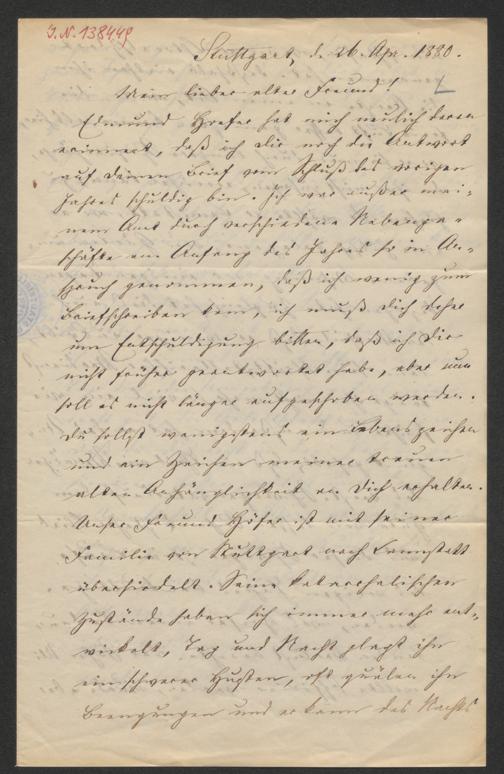 J.N. 138449
Stuttgart, d. 26. Apr. 1880.
Mein lieber alter Freund!
Edmund Hoefer hat mich neulich daran
erinnert, daß ich Dir noch die Antwort
auf Deinen Brief vom Schluß des vorigen
Jahres schuldig bin. Ich war außer mei-
nem Amt durch verschiedene Nebenge-
schäfte am Anfang des Jahres so in An-
spruch genommen, daß ich wenig zum
Briefschreiben kam, ich muß Dich daher
um Entschuldigung bitten, daß ich Dir
nicht früher geantwortet habe, aber nun
soll es nicht länger aufgeschoben werden.
Du sollst wenigstens ein Lebenszeichen
und ein Zeichen meiner treuen
alten Anhänglichkeit an Dich erhalten.
Unser Freund Höfer ist mit seiner
Familie von Stuttgart nach Cannstatt
übersiedelt. Seine katarrhalischen
Zustände haben sich immer mehr ent-
wickelt, Tag und Nacht plagt ihn
ein schwerer Husten, oft quälen ihn
Beengungen und er kann des Nachts